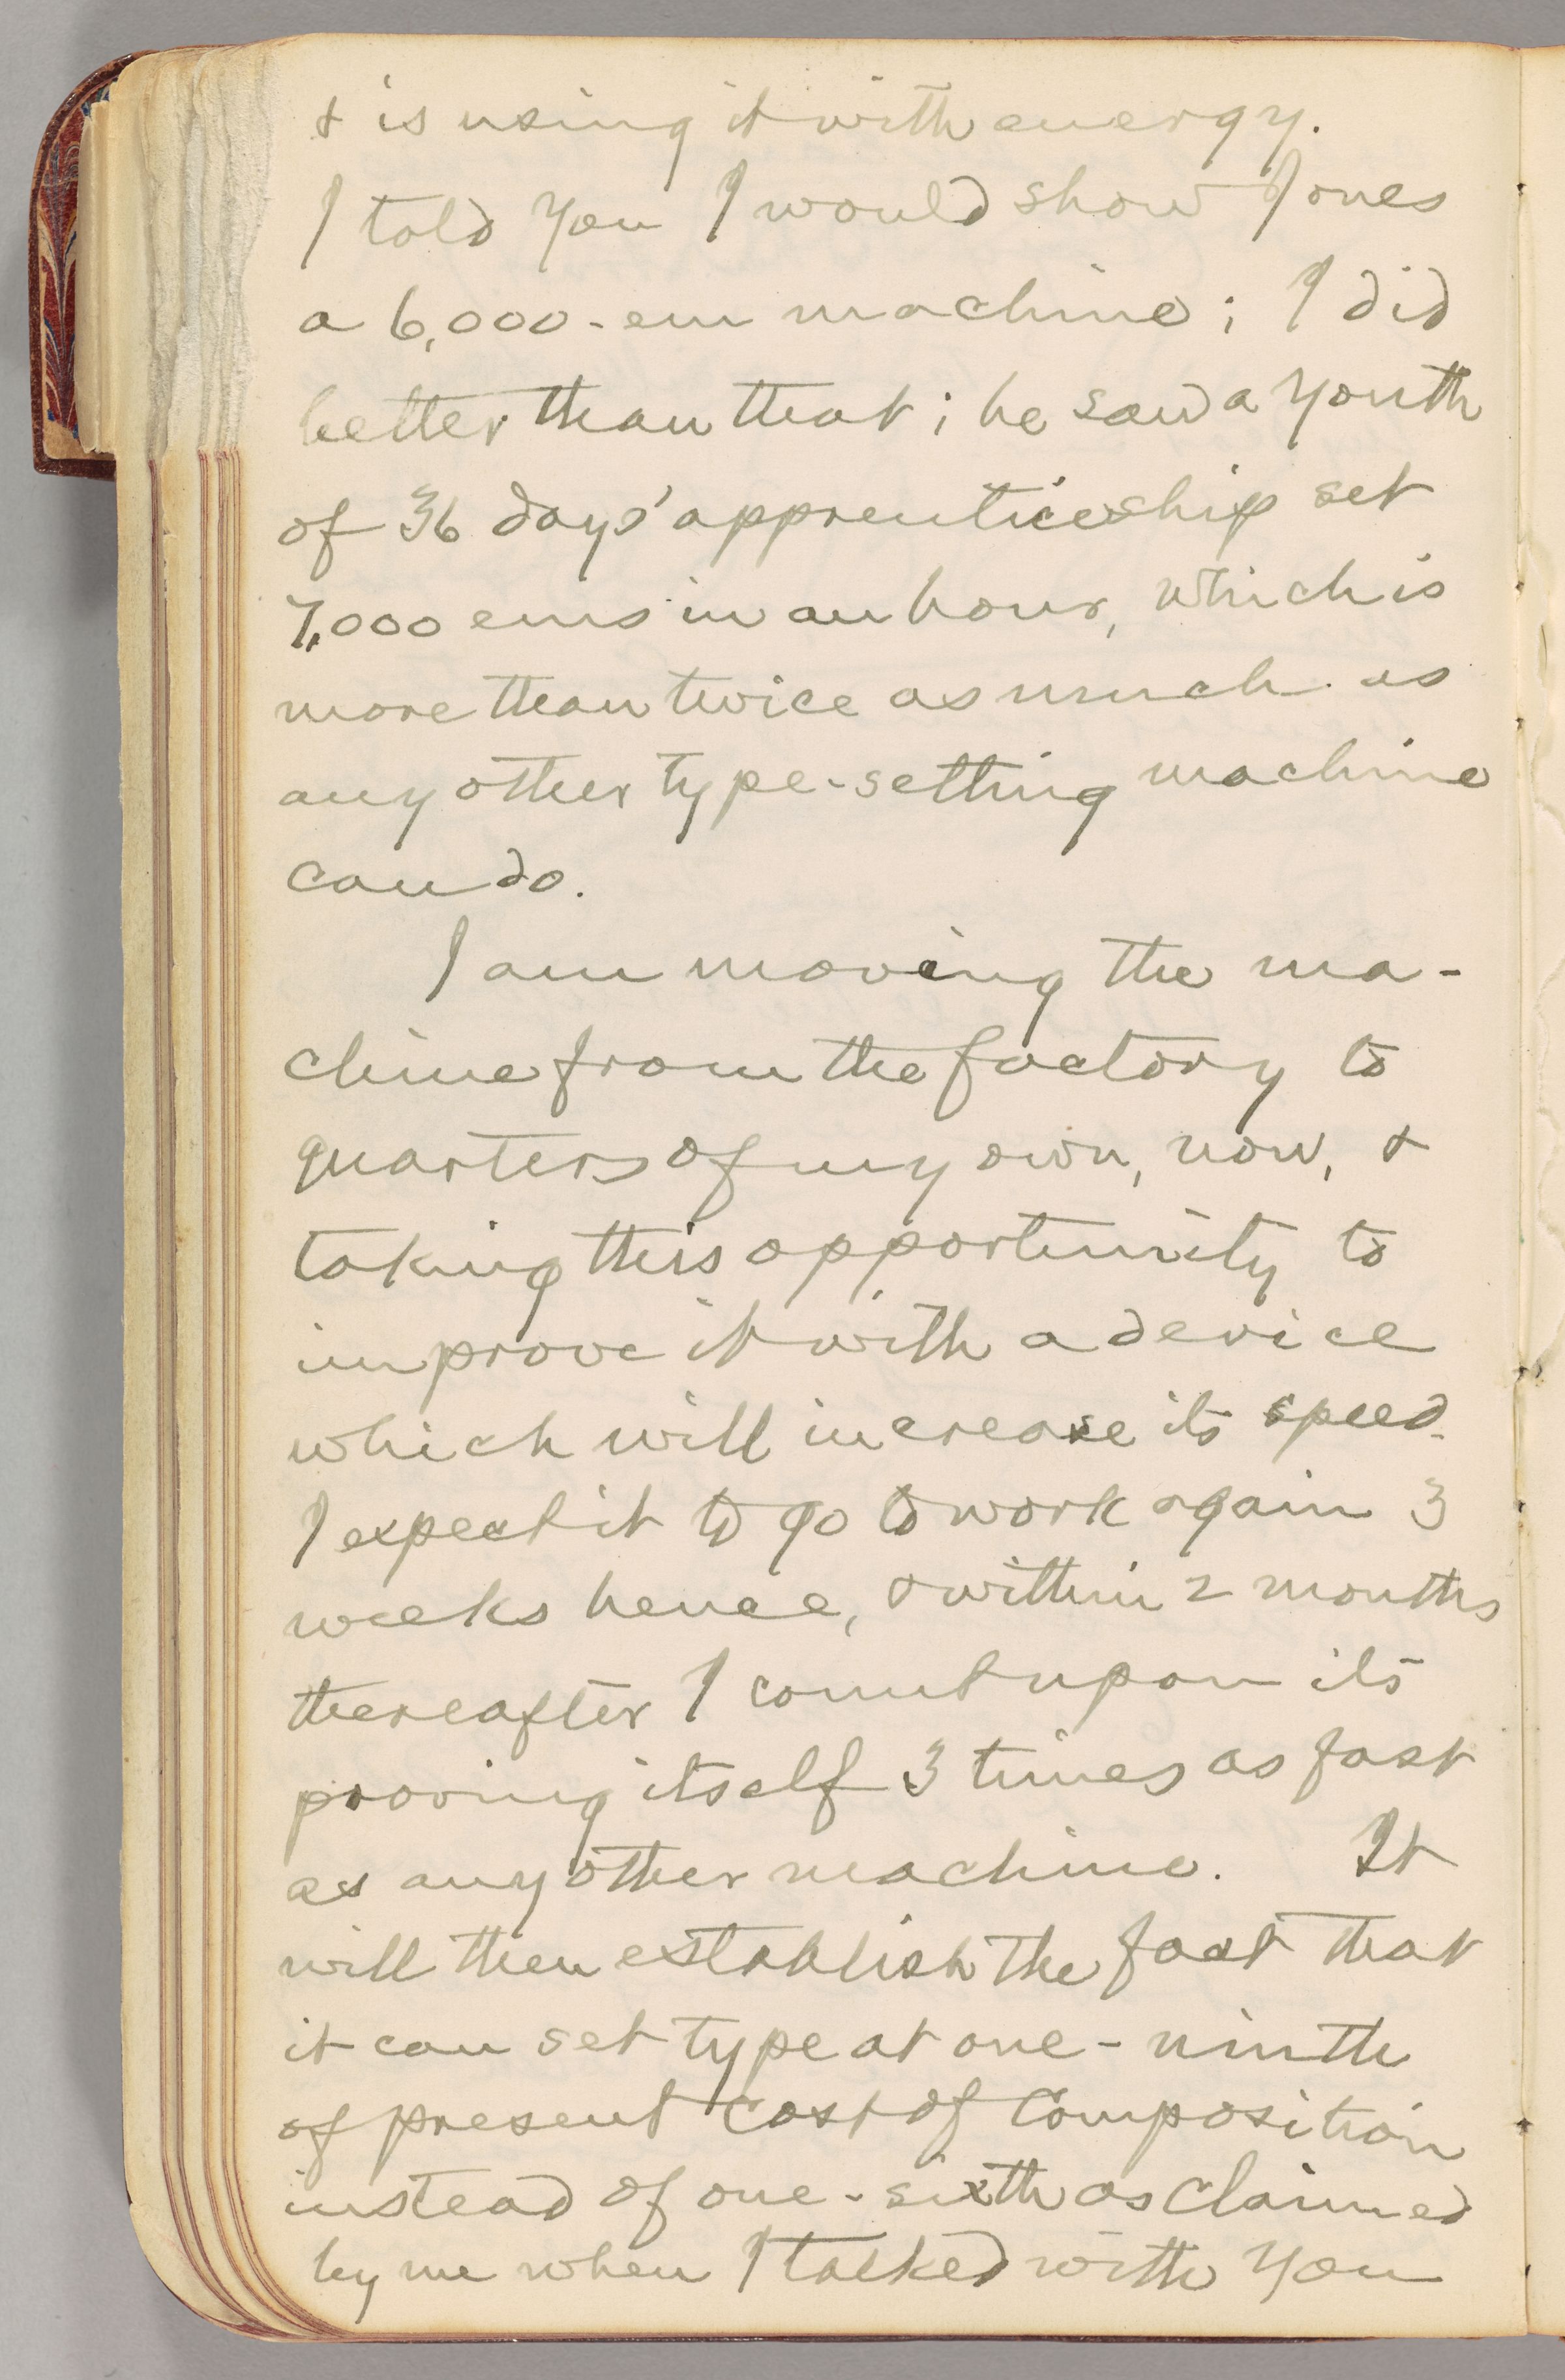 & is using it with energy.
I told you I would show Jones
a 6,000-em machine; I did
better than that; he saw a youth
of 36 days' apprenticeship set
7,000 ems in an hour, which is
more than twice as much as
any other type-setting machine
can do.
I am moving the ma-
chine from the factory to
quarters of my own, now, &
taking this opportunity to
improve it with a device
which will increase its speed.
I expect it to go to work again 3
weeks hence, & within 2 months
thereafter I count upon its
proving itself 3 times as fast
as any other machine. It
will then establish the fact that
it can set type at one-ninth
of present cost of composition
instead of one-sixth as claimed
by me when I talked with you